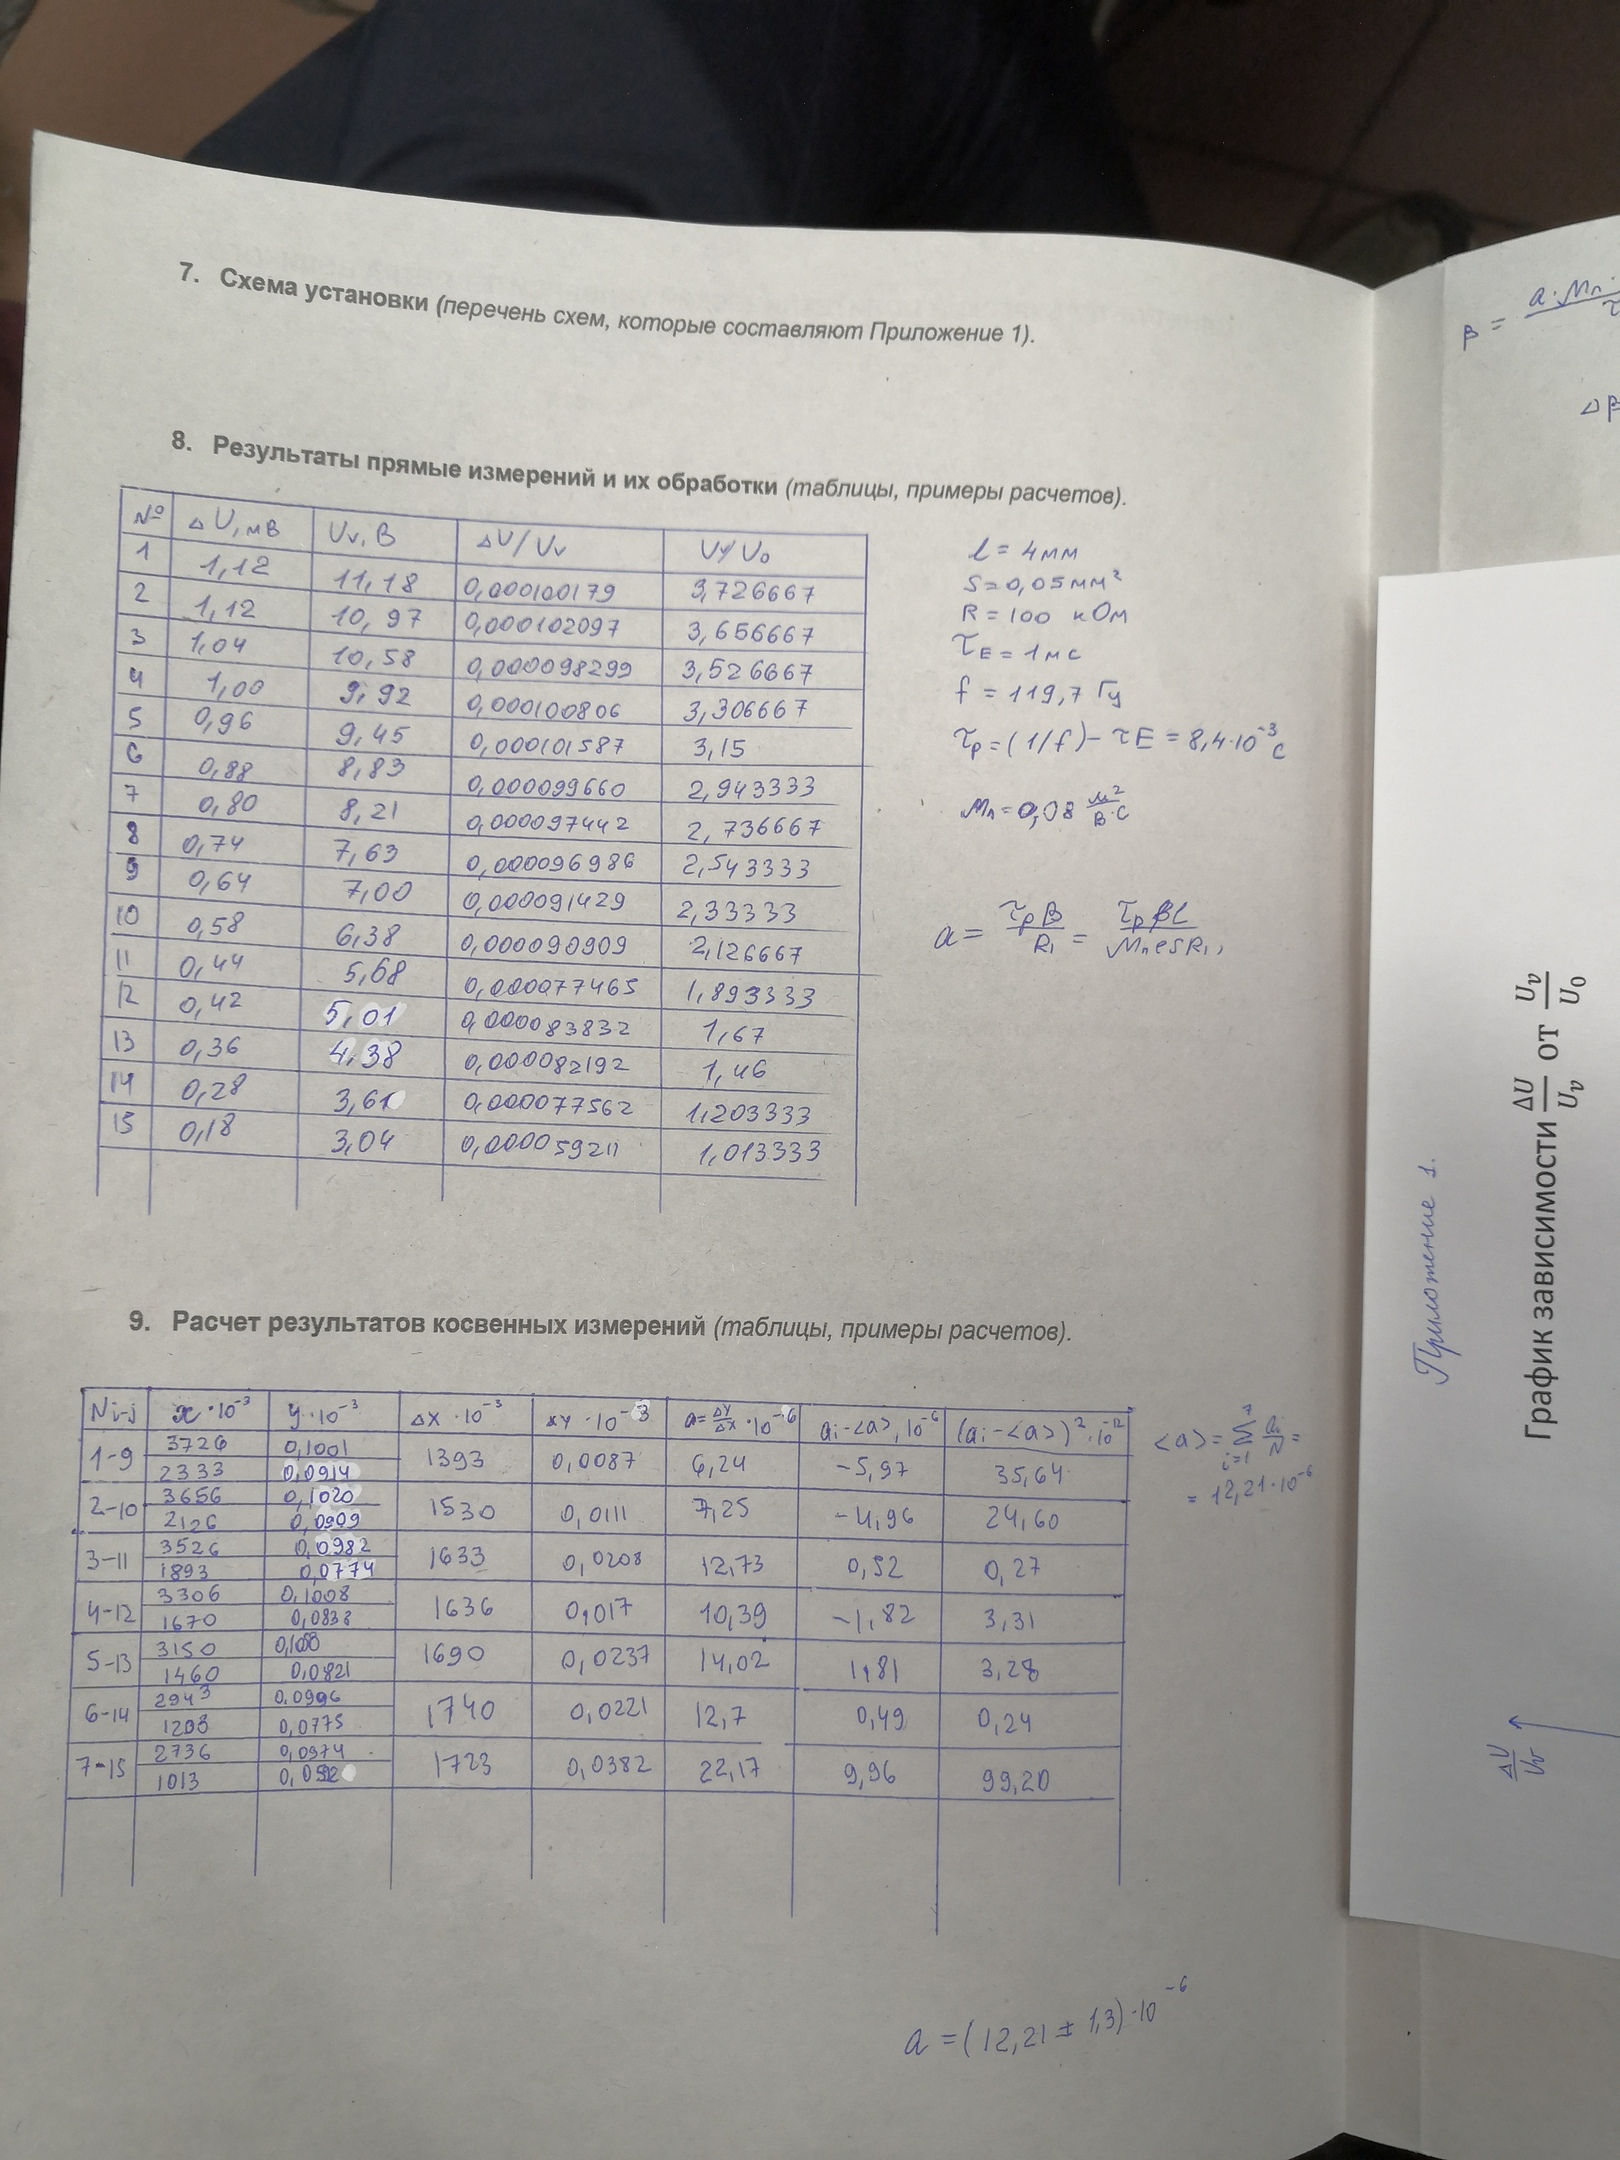 7. Схема установки (перечень схем, которые составляют Приложение 1).
8. Результаты прямые измерений и их обработки (таблицы, примеры расчетов).
№ ΔU, мВ Uv, В ΔU/Uv Uv/U₀
1 1,12 11,18 0,000100179 3,726667
2 1,12 10,97 0,000102097 3,656667
3 1,04 10,58 0,000098299 3,526667
4 1,00 9,92 0,000100806 3,306667
5 0,96 9,45 0,000101587 3,15
6 0,88 8,83 0,000099660 2,943333
7 0,80 8,21 0,000097442 2,736667
8 0,74 7,63 0,000096986 2,543333
9 0,64 7,00 0,000091429 2,33333
10 0,58 6,38 0,000090909 2,126667
11 0,44 5,68 0,000077465 1,893333
12 0,42 5,01 0,000083832 1,67
13 0,36 4,38 0,000082192 1,46
14 0,28 3,61 0,000077562 1,203333
15 0,18 3,04 0,000059211 1,013333
l = 4мм
S = 0,05мм²
R = 100 кОм
τE = 1мс
f = 119,7 Гц
τp = (1/f) - τE = 8,4·10⁻³ с
Mn = 0,08 м²/В·с
a = τpβ/R₁ = τpβl/MneSR₁,
9. Расчет результатов косвенных измерений (таблицы, примеры расчетов).
Ni-j x·10⁻³ y·10⁻³ Δx·10⁻³ Δy·10⁻³ a=Δy/Δx·10⁻⁶ ai-<a>,10⁻⁶ (ai-<a>)²·10⁻¹²
1-9 3726 0,1001 1393 0,0087 6,24 -5,97 35,64
2333 0,0914
2-10 3656 0,1020 1530 0,0111 7,25 -4,96 24,60
2126 0,0909
3-11 3526 0,0982 1633 0,0208 12,73 0,52 0,27
1893 0,0774
4-12 3306 0,1008 1636 0,017 10,39 -1,82 3,31
1670 0,0838
5-13 3150 1690 0,0237 14,02 1,81 3,28
1460 0,0821
6-14 2943 0,0996 1740 0,0221 12,7 0,49 0,24
1203 0,0775
7-15 2736 0,0974 1723 0,0382 22,17 9,96 99,20
1013
<a> = Σ ai/N =
7
i=1
= 12,21·10⁻⁶
a = (12,21 ± 1,3)·10⁻⁶
β = a·Mn·
Δβ
Приложение 1.
График зависимости ΔU/Uv от Uv/U0
ΔU/Uv